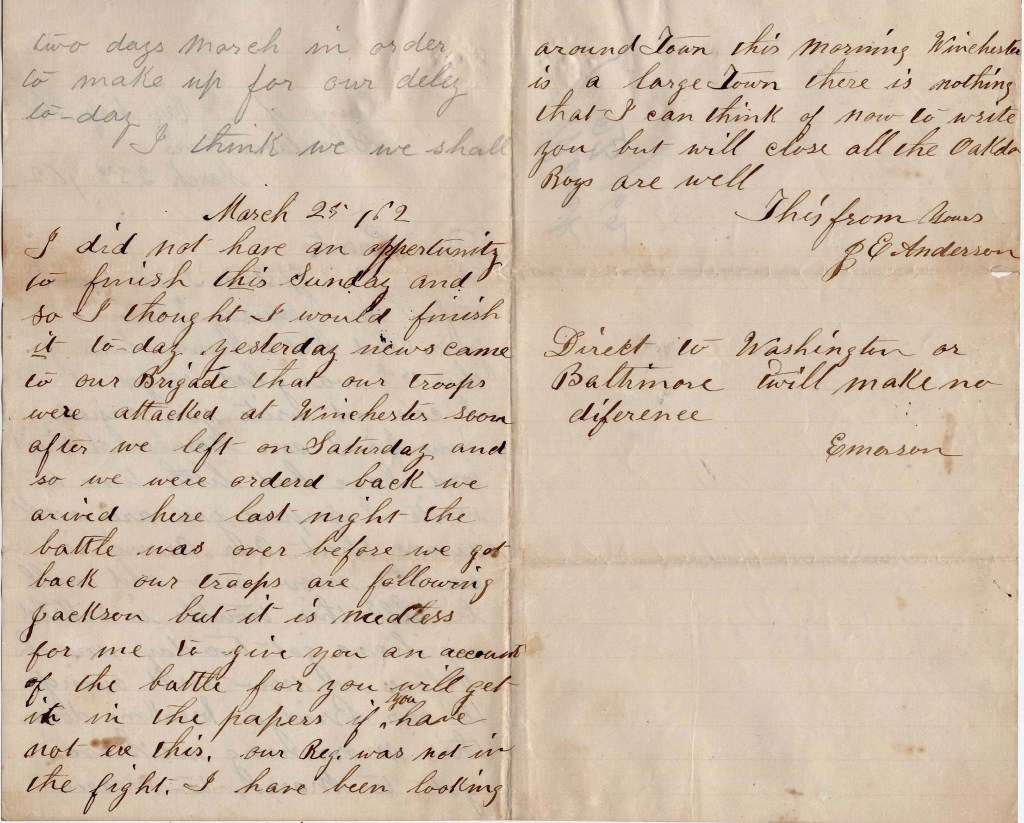 two days March in order
to make up for our delay
to-day
I think we we shall
March 25 /62
I did not have an appertunity
to finish this Sunday and
so I thought I would finish
it to-day yesterday news came
to our Brigade that our troops
were attacked at Winchester soon
after we left on Saturday and
so we were orderd back we
arived here last night the
battle was over before we got
back our troops are following
Jackson but it is needless
for me to give you an account
of the battle for you will get
it in the papers if you have
not ere this. our Reg. was not in
the fight. I have been looking
around Town this morning Winchester
is a large Town there is nothing
that I can think of now to write
you but will close all the Oakda
Boys are well
This from Yours
J E Anderson
Direct to Washington or
Baltimore twill make no
diference
Emerson